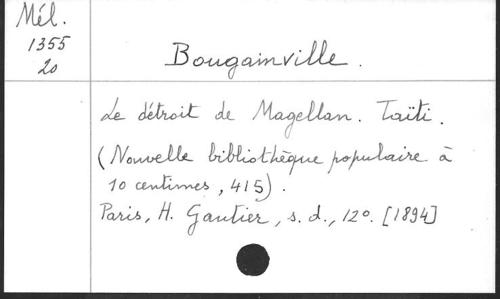 Mél.
1355
20
Bougainville.
Le détroit de Magellan. Taïti.
(Nouvelle bibliothèque populaire à
10 centimes, 415).
Paris, H. Gautier, s. d., 12°. [1894]